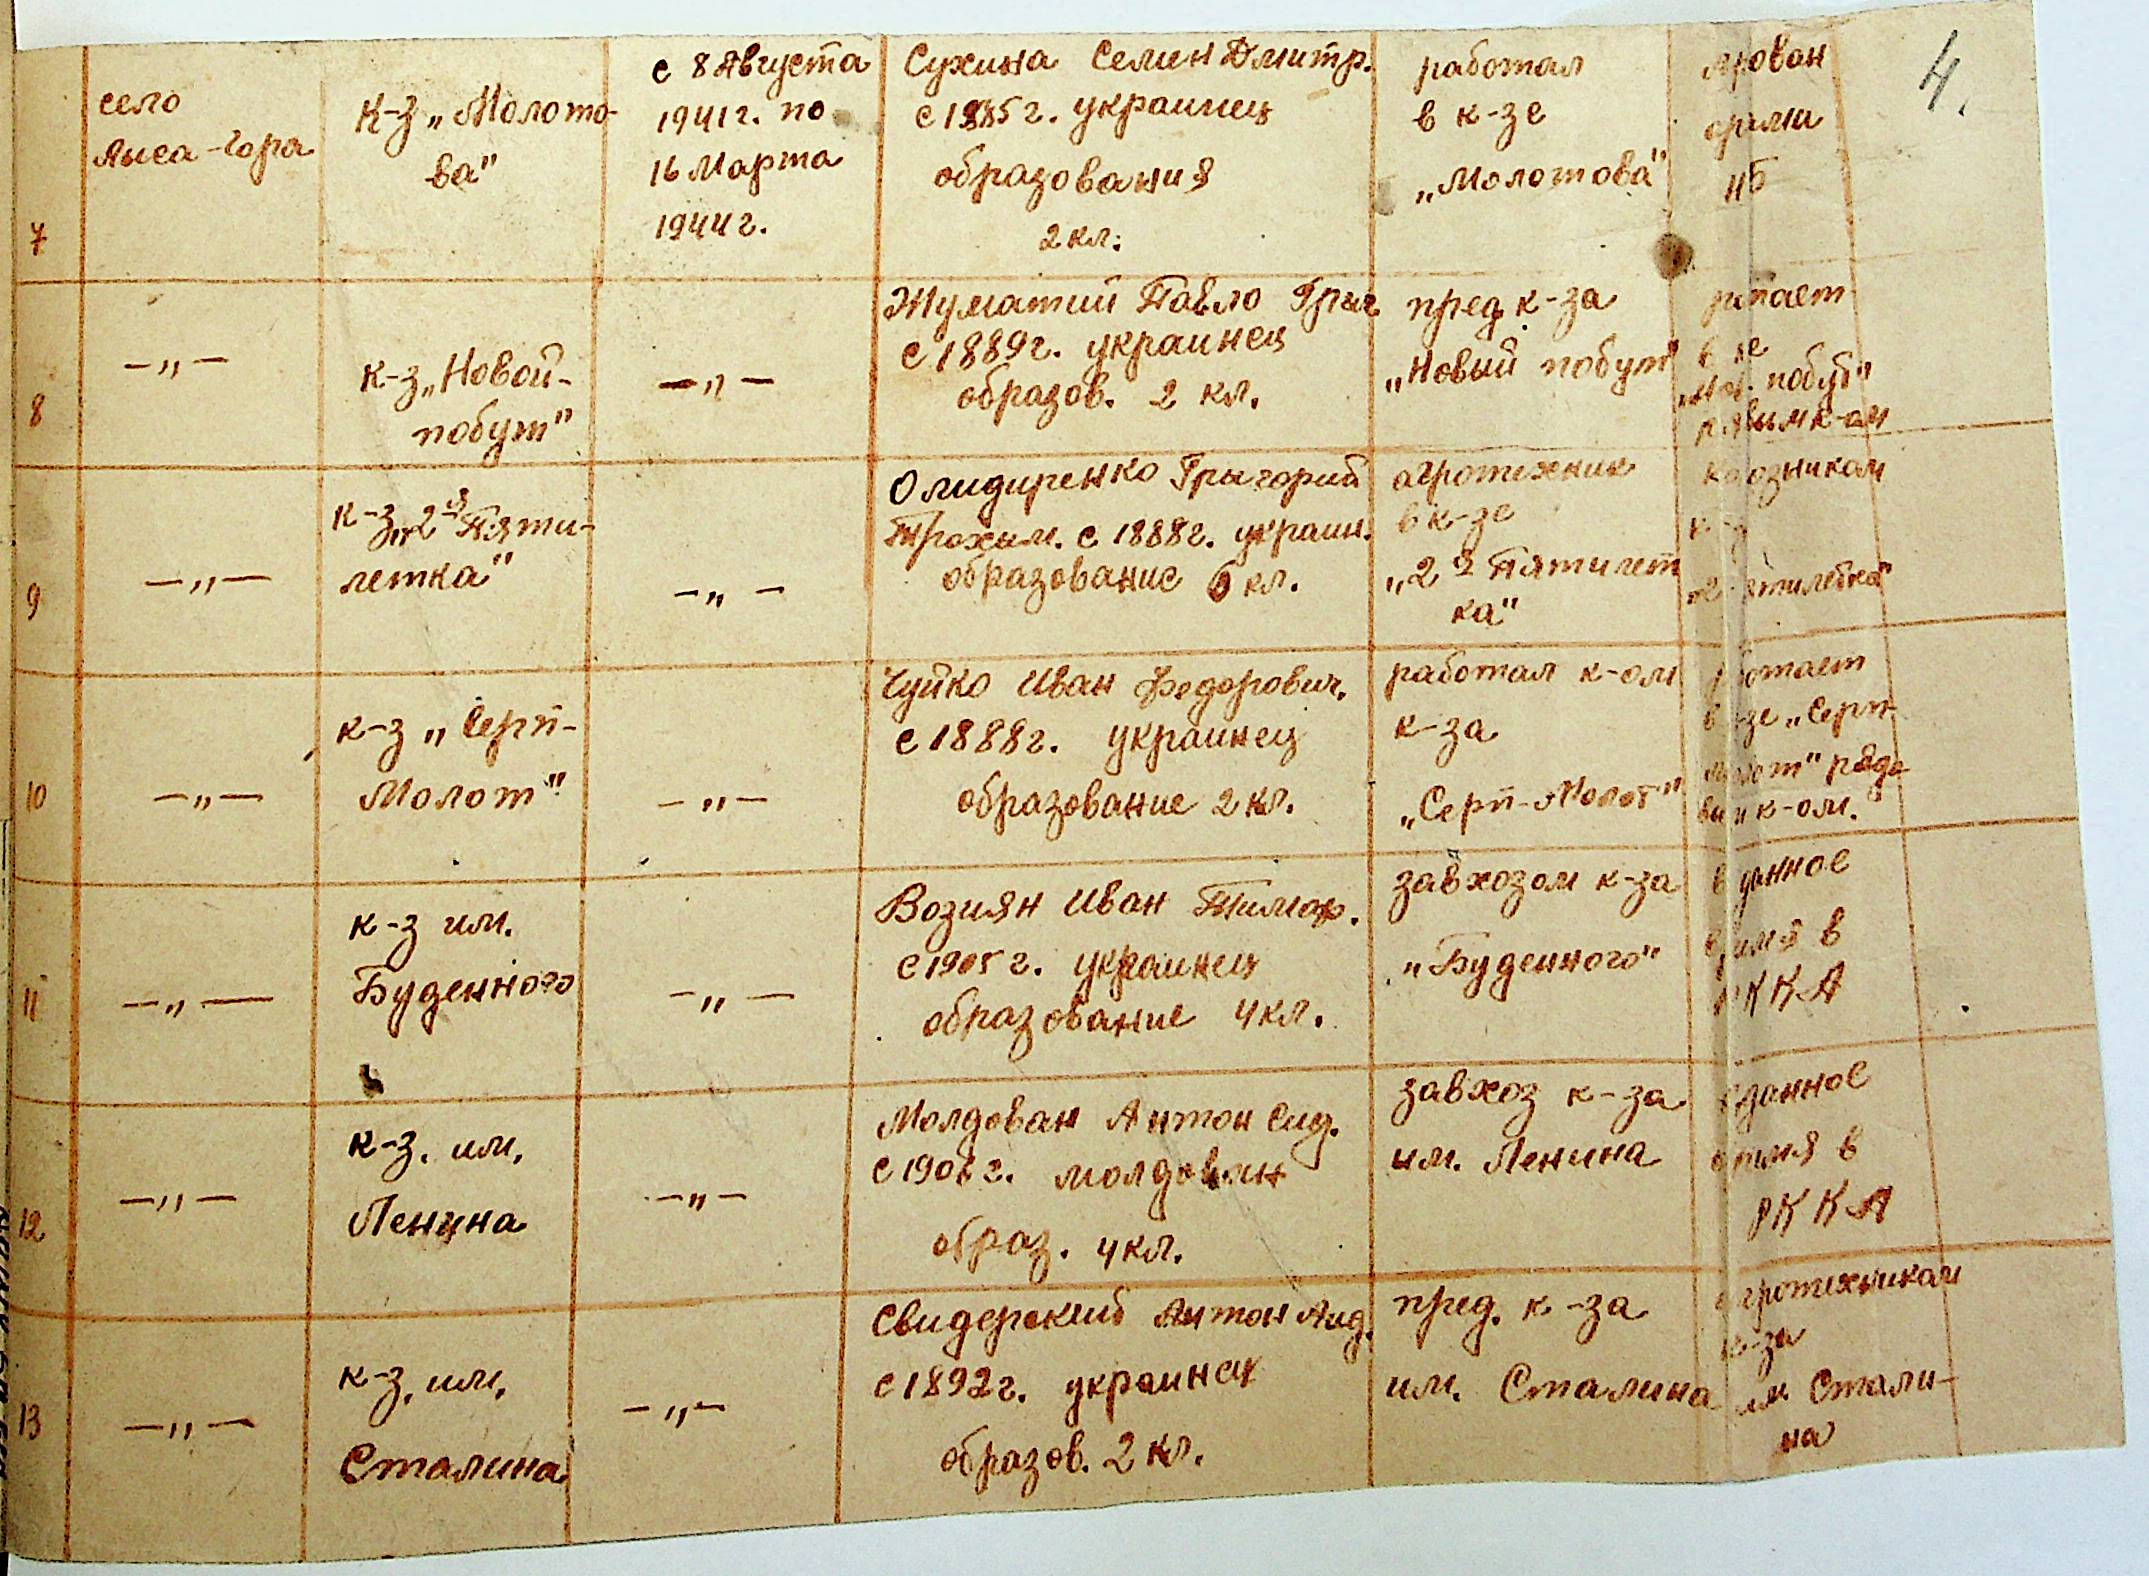 4.
7
село
Лыса-Гора
к-з „Молото-
ва"
с 8 Августа
1941г. по
16 Марта
1944г.
Сухина Семен Дмитр.
с 1885г. украинец
образования
2 кл.
работал
в к-зе
„Молотова"
8
—„—
к-з „Новой-
побут"
—„—
Жуматий Павло Грыг
с 1889г. украинец
образов. 2 кл.
пред к-за
„Новый побут"
побут"
9
—„—
к-з „2я Пяти-
летка"
—„—
Олидиренко Грыгорий
Трохим. с 1888г. украин.
образование 6 кл.
агротехник
в к-зе
„2я Пятилет
ка"
10
—„—
к-з „Серп-
Молот"
—„—
Чуйко Иван Федорович.
с 1888г. украинец
образование 2 кл.
работал к-ом
к-за
„Серп-Молот"
„Серп-
рядо
к-ом.
11
—„—
к-з им.
Буденного
—„—
Возиян Иван Тимоф.
с 1905г. украинец
образование 4 кл.
завхозом к-за
„Буденного"
в данное
в
РККА
12
—„—
к-з. им.
Ленина
—„—
Молдован Антон Сид.
молдован
образ. 4 кл.
завхоз к-за
им. Ленина
данное
в
РККА
13
—„—
к-з. им.
Сталина
—„—
Свидерский Антон
с 1892г. украинец
образов. 2 кл.
пред. к-за
им. Сталина
агротехником
к-за
Стали-
на